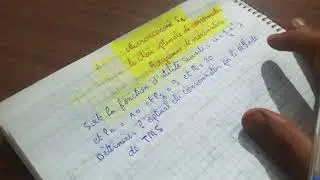 Microéconomie S2
le choix optimale du consommateur
Programme de maximisation
Soit la fonction d'utilité suivante :
et Px = 10 et Py = et R =
Déterminer l'optimal du consommateur par la méthode
de TMS